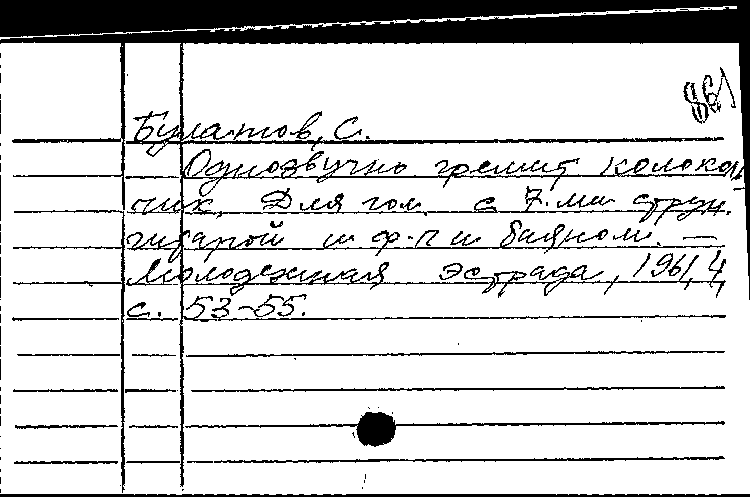 861
Булатов, С.
Однозвучно гремит колоколь
чик. Для гол. с 7-ми струн.
гитарой и ф-п и баяном. —
Молодежная эстрада, 1961, 4,
с. 53-55.